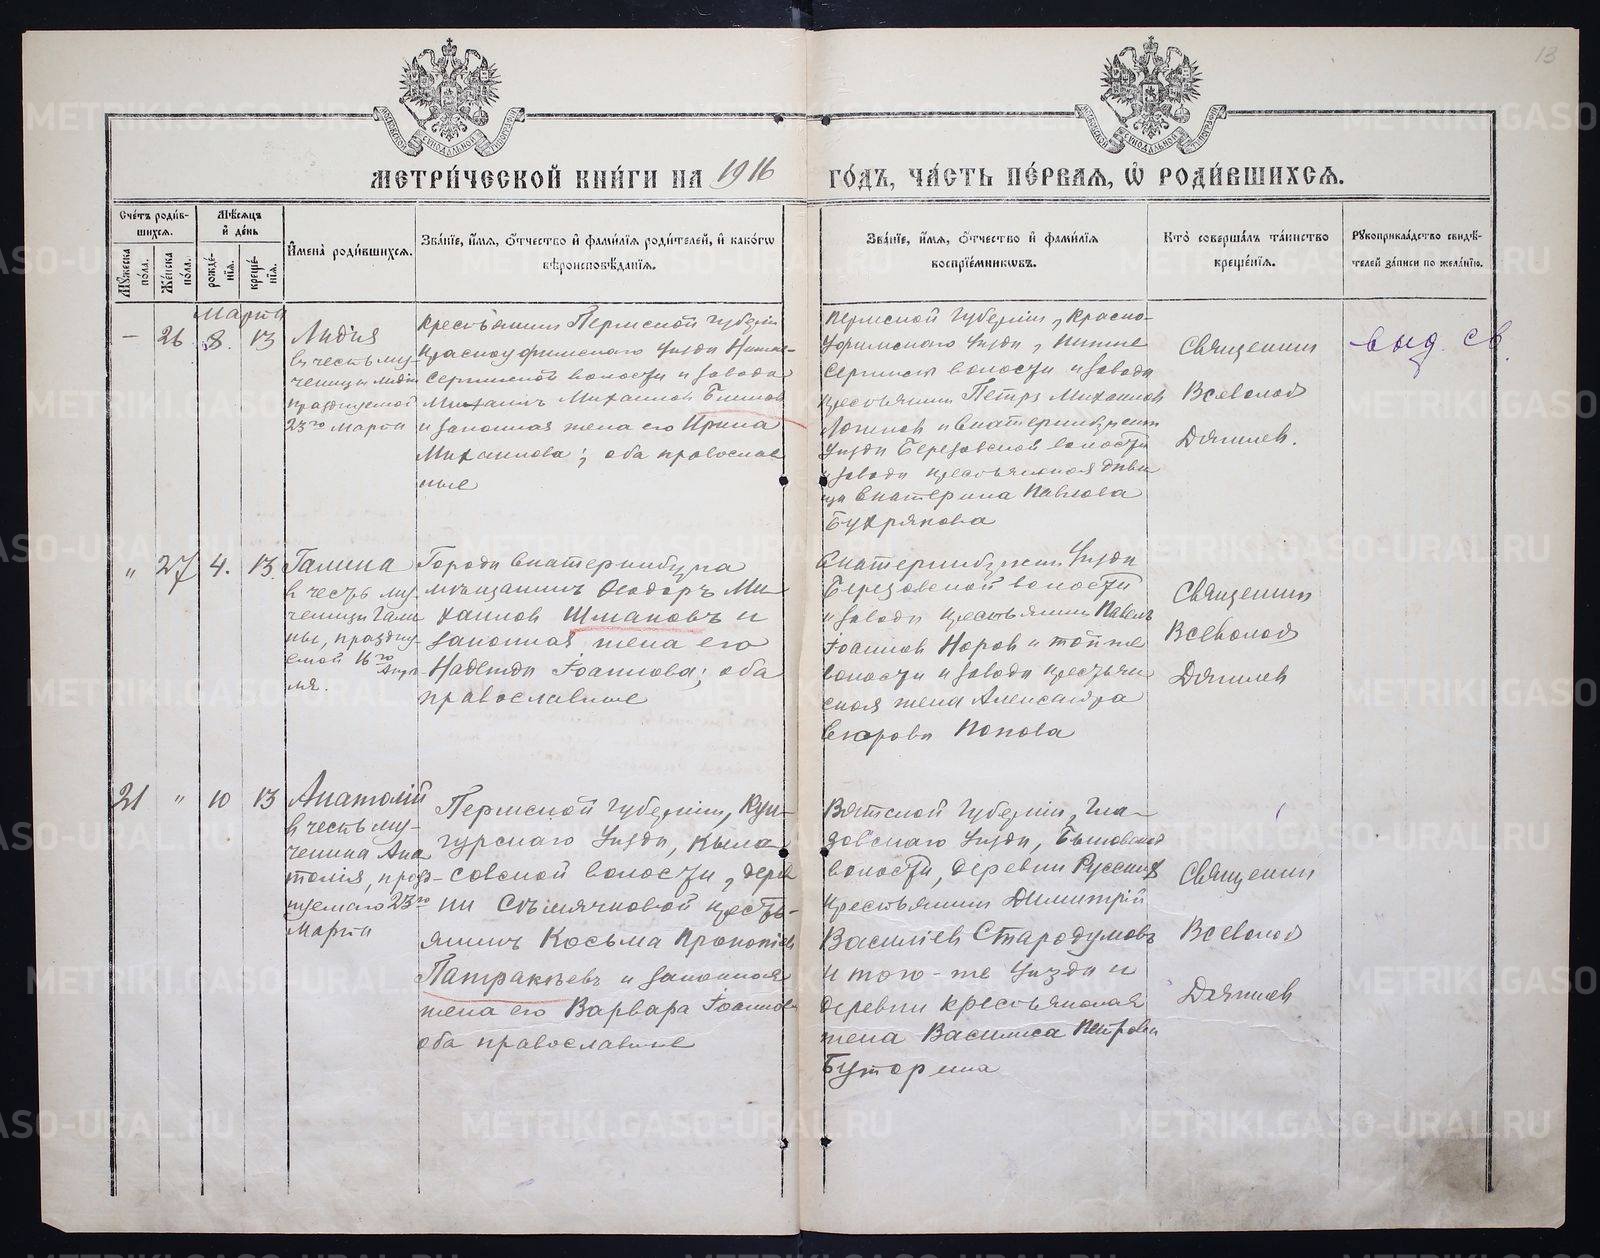 13
МОСКОВСКОЙ СѴНОДАЛЬНОЙ ТИПОГРАФІИ
МОСКОВСКОЙ СѴНОДАЛЬНОЙ ТИПОГРАФІИ
МЕТРИ́ЧЕСКОЙ КНИ́ГИ НА 1916 ГО́ДЪ, ЧА́СТЬ ПЕ́РВАѦ, Ѡ҆ РОДИ́ВШИХСѦ.
Сче́тъ роди́в-
шихсѧ.
Мꙋ́жеска по́ла.
Же́нска по́ла.
Мѣ́сѧцъ
и҆ де́нь
рожде́-
нїѧ.
креще́-
нїѧ.
И҆мена̀ роди́вшихсѧ.
Зва́нїе, и҆́мѧ, ѻ҆́тчество и҆ фами́лїѧ роди́телей, и҆ како́гѡ
вѣроисповѣ́данїѧ.
Зва́нїе, и҆́мѧ, ѻ҆́тчество и҆ фами́лїѧ
воспрїе́мникѡвъ.
Кто̀ соверша́лъ та́инство
креще́нїѧ.
Рꙋкоприкла́дство свидѣ́-
телей за́писи по жела́нїю.
Марта
– 26 8. 13
Лидія
въ честь му-
ченицы Лидіи
празднуемой
23го Марта
Крестьянинъ Пермской губерніи
Красноуфимскаго уѣзда Нижне-
Сергинской волости и завода
Михаилъ Михаиловъ Блинов
и законная жена его Ирина
Михаилова; оба православ
ные
Пермской губерніи, Красно-
уфимскаго уѣзда, Нижне
Сергинской волости и завода
крестьянинъ Петръ Михаилов
и Екатеринбургскаго
уѣзда Березовской волости
и завода крестьянская дѣви
ца Екатерина Павлова
Бухрякова
Священникъ
Всеволод
выд. св.
" 27 4. 13.
Галина
въ честь му-
ченицы Гали
ны, праздну-
емой 16го Апрѣ
ля.
Города Екатеринбурга
мѣщанинъ Ѳеодоръ Ми-
хаилов Шмаковъ и
законная жена его
Надежда Іоаннова; оба
православные
Екатеринбургскаго уѣзда
Березовской волости
и завода крестьянинъ Павелъ
Іоаннов Норов и той же
волости и завода крестьян
ская жена Александра
Егорова Попова
Священникъ
Всеволод
21 " 10 13
Анатолій
въ честь му-
ченика Ана
толія, празд-
нуемаго 23го
Марта
Пермской губерніи, Кун-
гурскаго уѣзда, Кыла-
совской волости, дерев
ни Съмячковой кресть-
янинъ Косьма Прокопіев
Патракѣевъ и законная
жена его Варвара Іоаннова
оба православные
Вятской губерніи, Гла-
зовскаго уѣзда,
волости, деревни Русских
крестьянинъ Димитрій
Василіев Стародумовъ
и того-же уѣзда и
деревни крестьянская
жена Василиса Петрова
Буторина
Священникъ
Всеволод